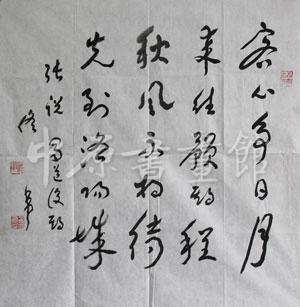 客心争日月
来往预期程
秋风不相待
先到洛阳城
张说 蜀道后期
中原書畫館